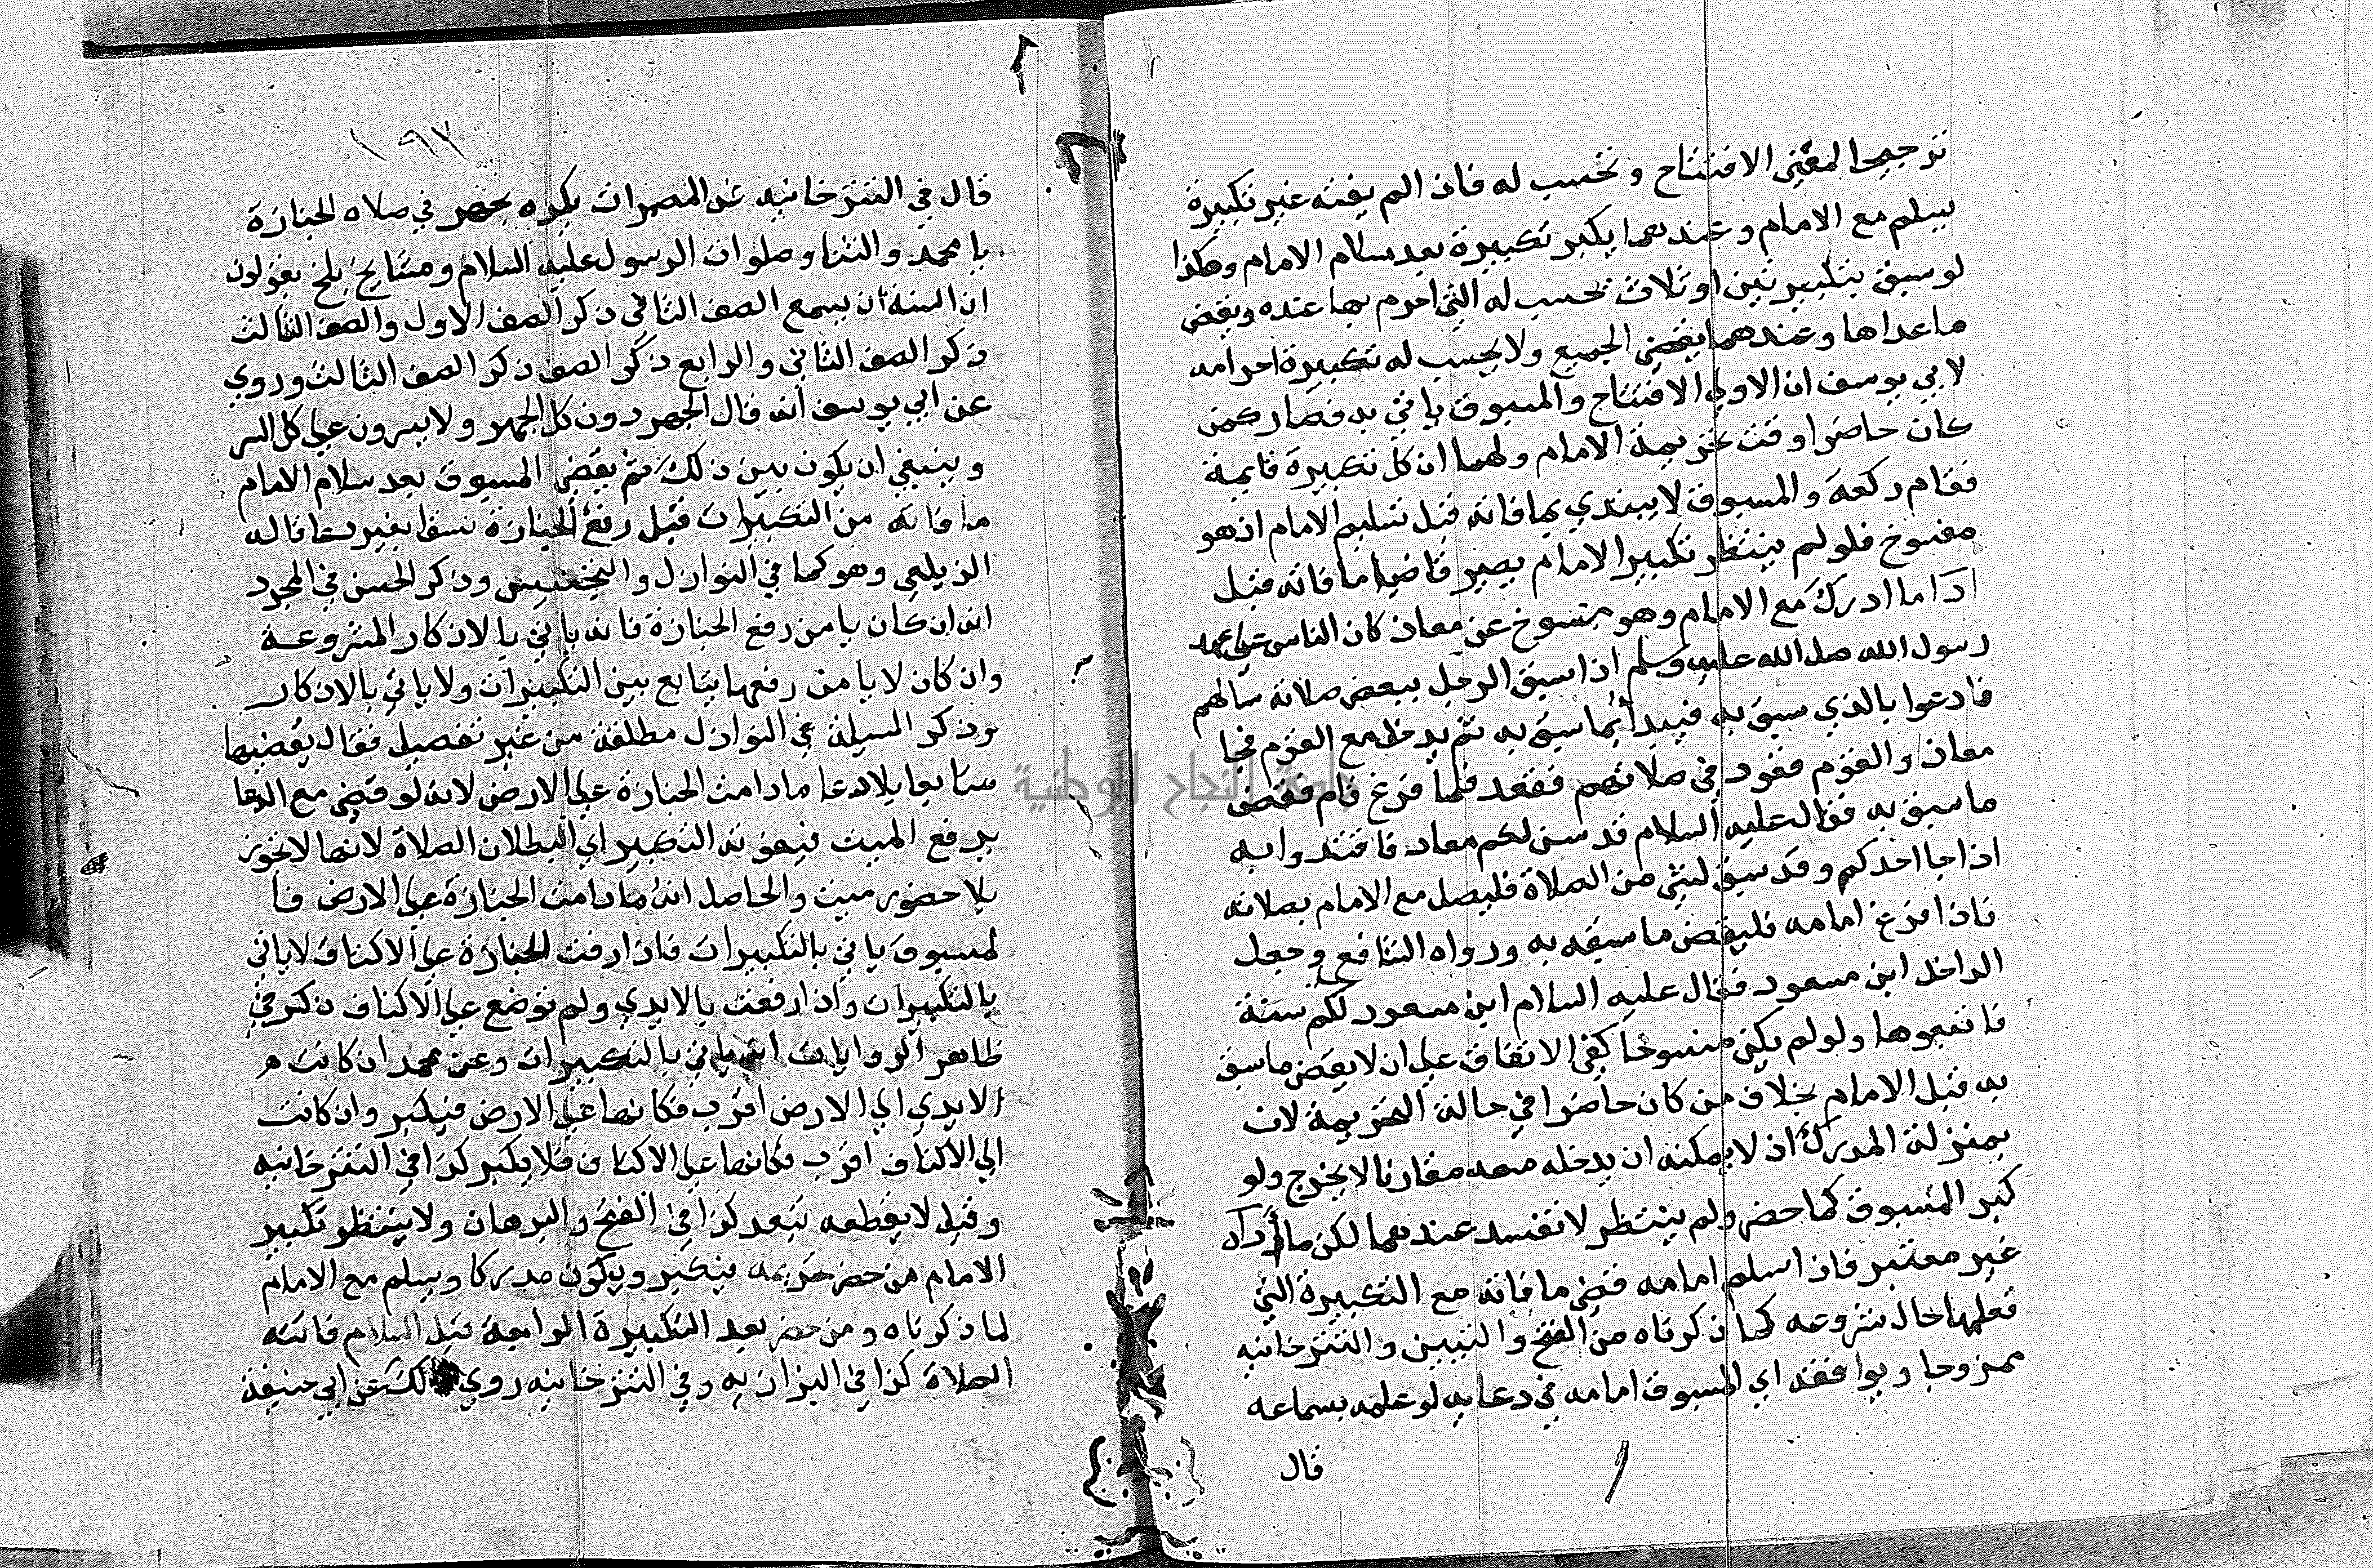 ترجيحا لمعني الافتتاح وتحسب له فان لم يفته غير تكبيرة
يسلم مع الامام وعندهما يكبر تكبيرة بعد سلام الامام وهكذا
لو سبق بتكبيرتين او ثلاث تحسب له التي احرم بها عنده ويقضي
ماعداها وعندهما يقضي الجميع ولا يحسب له تكبيرة احرامه
لابي يوسف ان الاولي الافتتاح والمسبوق ياتي به فصار كمن
كان حاضرا وقت تحريمة الامام ولهما ان كل تكبيرة قايمة
فقام ركعة والمسبوق لا يبتدي بما فاته قبل تسليم الامام اذ هو
مفسوخ فلو لم ينتظر تكبير الامام يصير قاضيا ما فاته قبل
ادا ما ادرك مع الامام وهو منسوخ عن معاذ كان الناس علي عهد
رسول الله صلي الله عليه وسلم اذا سبق الرجل ببعض صلاته سالهم
فادعوا بالذي سبق به فيبدا بما سبق به ثم يدخل مع القوم فجا
معاذ والقوم قعود في صلاتهم فقعد فلما فرغ قام فقضي
ما سبق به فقال عليه السلام قد سن لكم معاذ فاقتدوا به
اذا جا احدكم وقد سبق لشي من الصلاة فليصل مع الامام بصلاته
فاذا فرغ امامه فليقض ما سبقه به ورواه الشافعي وجعل
الداخل ابن مسعود فقال عليه السلام ابن مسعود لكم سنة
فاتبعوها ولو لم يكن منسوخا كفي الاتفاق علي ان لا يقض ما سبق
به قبل الامام بخلاف من كان حاضرا في حالة التحريمة لان
بمنزلة المدرك اذ لا يمكنه ان يدخله معه مقارنا لا بحرج ولو
كبر المسبوق كما حضر ولم ينتظر لا تفسد عندهما لكن ما اداه
غير معتبر فاذا سلم امامه قضي ما فاته مع التكبيرة التي
فعلها حال شروعه كما ذكرناه من الفتح والتبيين والتترخانيه
ممزوجا ويوافقه اي المسبوق امامه في دعايه لو علمه بسماعه
قال
١٩٧
قال في التترخانيه عن المضمرات يكره بجهر في صلاه الجنازة
بامحمد والثنا وصلوات الرسول عليه السلام ومشايخ بلخ يقولون
ان السنة ان يسمع الصف الثاني ذكر الصف الاول والصف الثالث
ذكر الصف الثاني والرابع ذكر الصف ذكر الصف الثالث وروي
عن ابي يوسف انه قال لا يجهر دون كل الجهر ولا يسرون علي كل السر
وينبغي ان يكون بين ذلك ثم يقضي المسبوق بعد سلام الامام
ما فاته من التكبيرات قبل رفع الجنازة نسقا بغير دعا قاله
الزيلعي وهو كما في النوازل والتجنيس وذكر الحسن في المجرد
انه ان كان يامن رفع الجنازة فانه ياتي بالاذكار المشروعة
وان كان لا يامن رفعها يتابع بين التكبيرات ولا ياتي بالاذكار
وذكر المسيلة في النوازل مطلقة من غير تفصيل فقال يقضيها
متتابعا بلا دعا ما دامت الجنازة علي الارض لانه لو قضي مع الدعا
يرفع الميت فيفوته التكبير اي لبطلان الصلاة لانها لا تجوز
بلا حضور ميت والحاصل انه ما دامت الجنازة علي الارض فا
لمسبوق ياتي بالتكبيرات فاذا رفت الجنازة علي الاكتاف لا ياتي
بالتكبيرات واذا رفعت بالايدي ولم توضع علي الاكتاف ذكر في
ظاهر الروايات انه ياتي بالتكبيرات وعن محمد ان كانت
الايدي الي الارض اقرب فكانها علي الارض فيكبر وان كانت
الي الاكتاف اقرب فكانها علي الاكتاف فلا يكبر كذا في التترخانيه
وقيل لا يقطعه بتعد كذا في الفتح والبرهان ولا ينتظر تكبير
الامام من حضر تحريمه فيكبر ويكون مدركا ويسلم مع الامام
لما ذكرناه ومن حضر بعد التكبيرة الرابعة قبل السلام فاتته
الصلاة كذا في البزازيه وفي التترخانيه روي عن ابي حنيفة
جامعة النجاح الوطنية